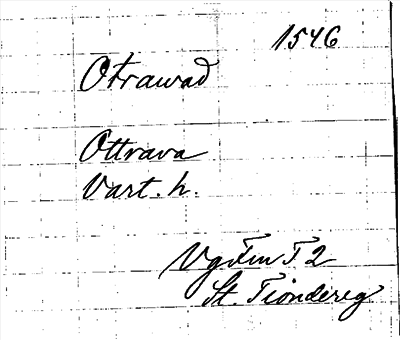 1546
Otrawad
Ottrava
Vart. h.
Vg Fm T 2
St. Tiondereg